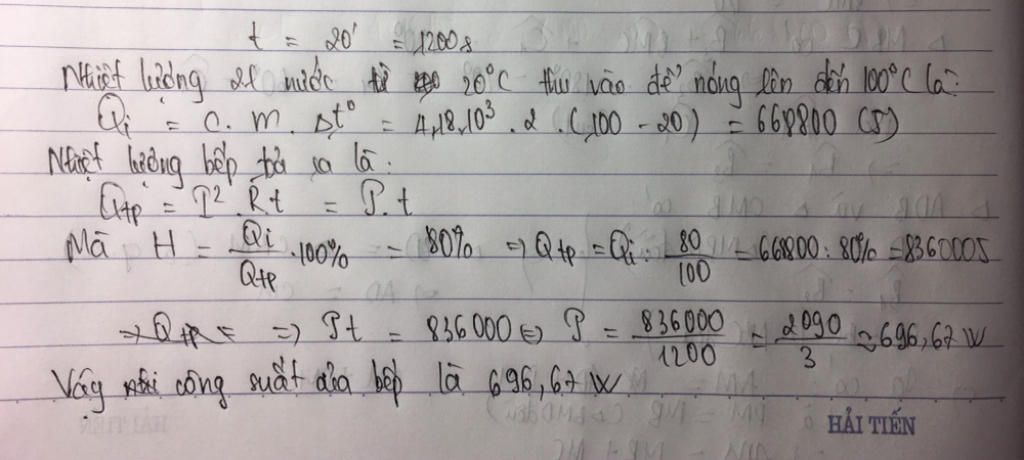 t = 20' = 1200s
Nhiệt lượng 2l nước từ 20°C thu vào để nóng lên đến 100°C là:
Qi = C. m. Δt° = 4,18.10³ . 2 . (100 - 20) = 668800 (J)
Nhiệt lượng bếp tỏa ra là:
Qtp = I². R t = P. t
Mà H = Qi/Qtp . 100% = 80% => Qtp = Qi : 80/100 = 668800 : 80% = 836000J
=> Qtp = => Pt = 836000 <=> P = 836000/1200 = 2090/3 ≈ 696,67 W
Vậy công suất của bếp là 696,67 W
HẢI TIẾN